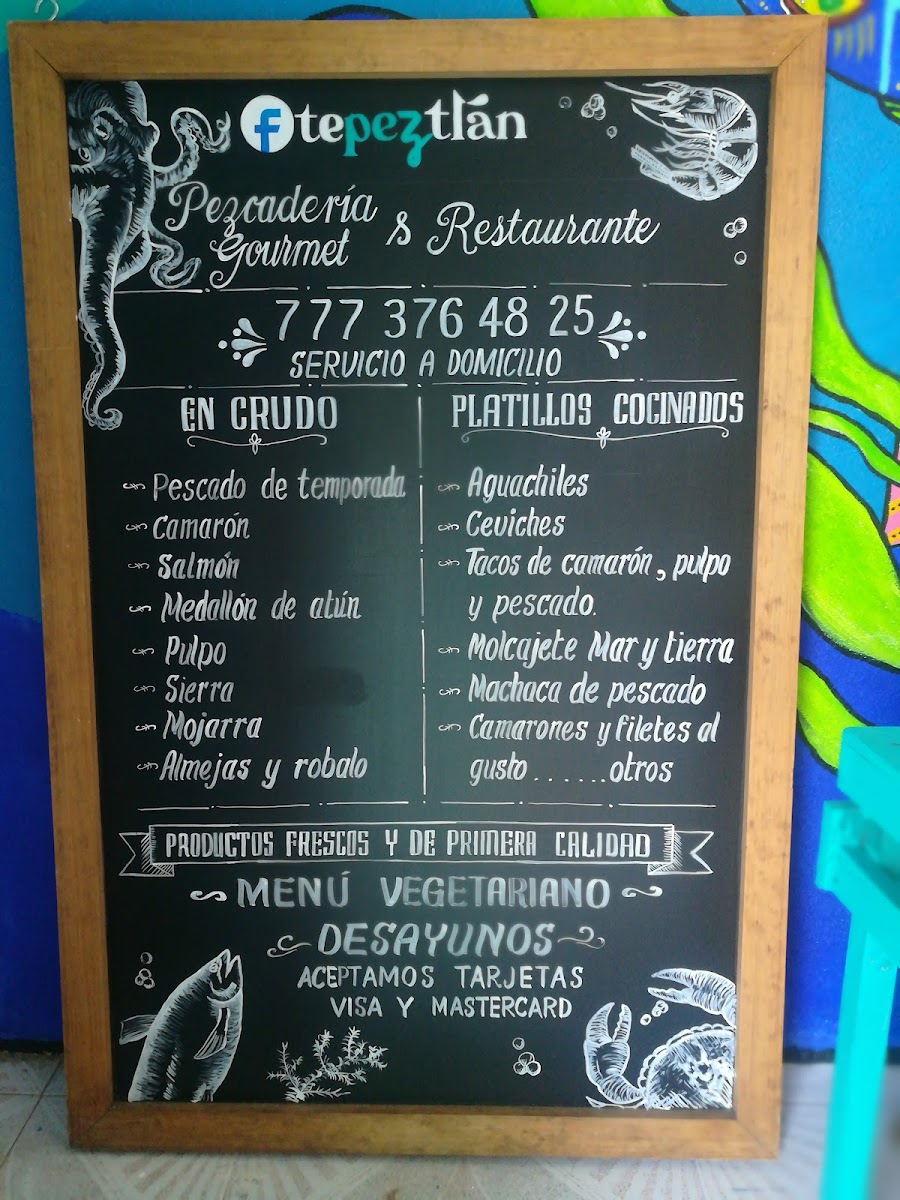 f tepeztlán
Pezcadería
Gourmet & Restaurante
777 376 48 25
SERVICIO A DOMICILIO
EN CRUDO
Pescado de temporada
Camarón
Salmón
Medallón de atún
Pulpo
Sierra
Mojarra
Almejas y robalo
PLATILLOS COCINADOS
Aguachiles
Ceviches
Tacos de camarón, pulpo
y pescado.
Molcajete Mar y tierra
Machaca de pescado
Camarones y filetes al
gusto......otros
PRODUCTOS FRESCOS Y DE PRIMERA CALIDAD
MENÚ VEGETARIANO
DESAYUNOS
ACEPTAMOS TARJETAS
VISA Y MASTERCARD